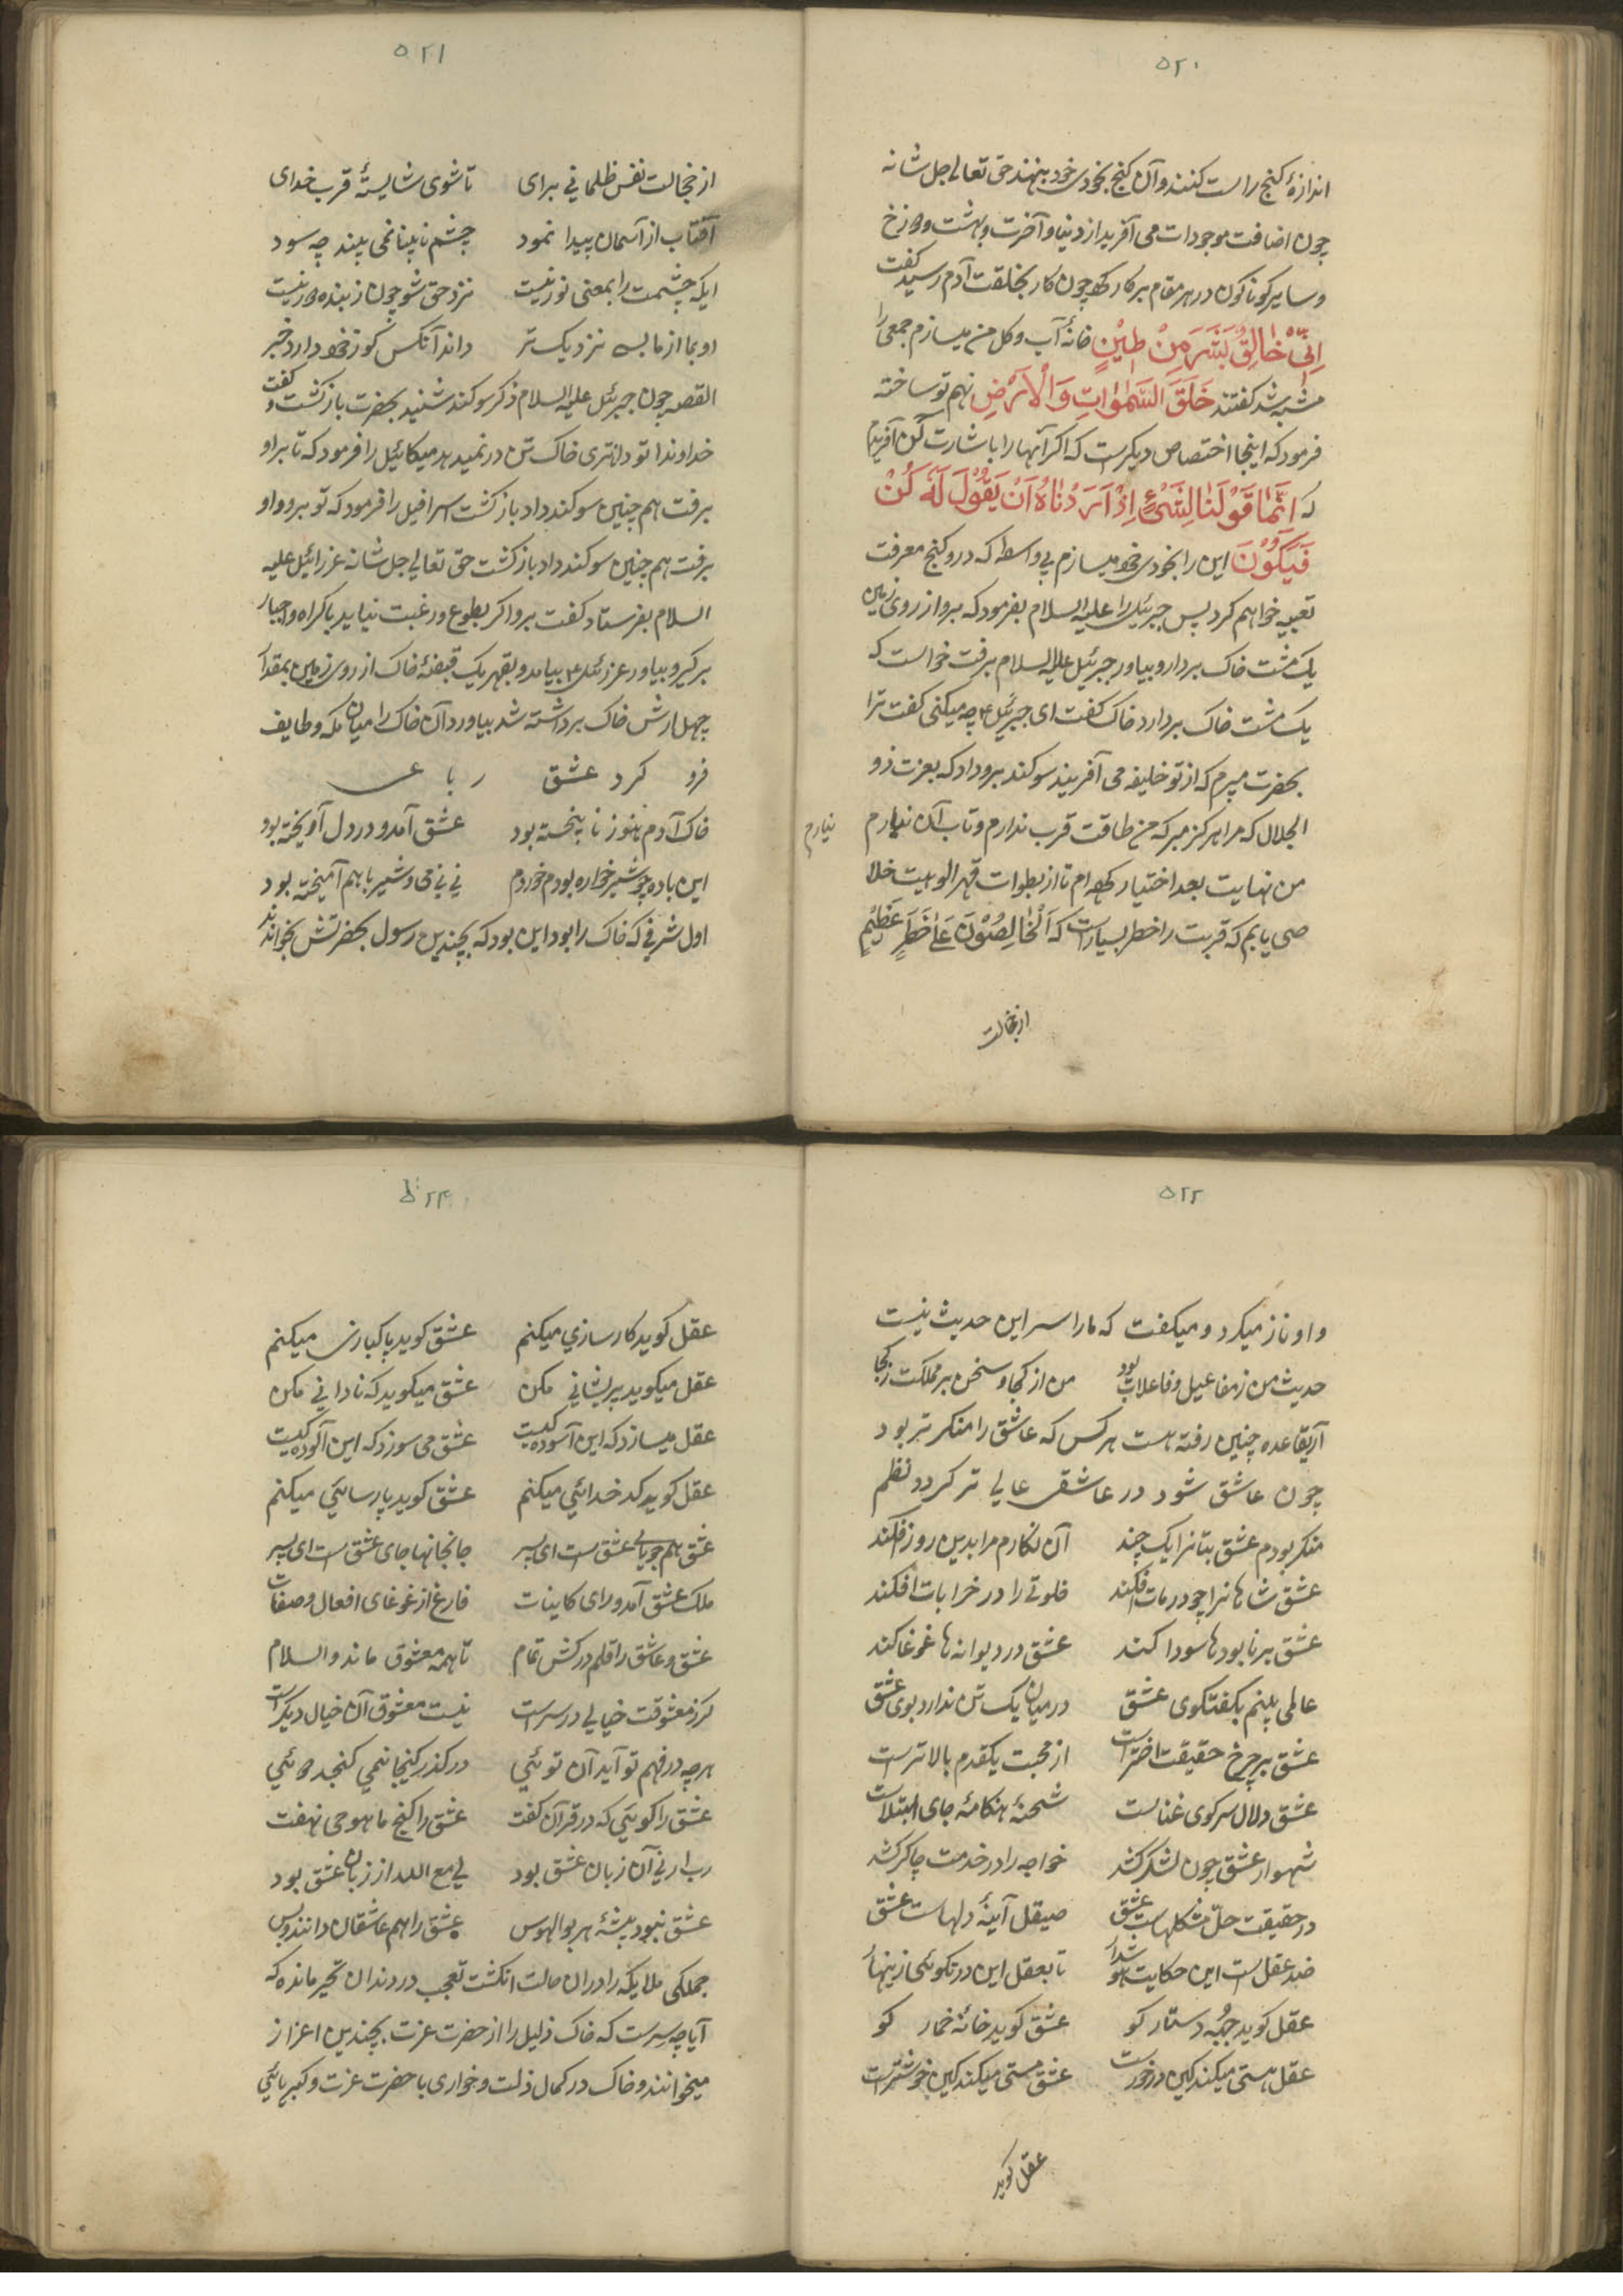 ۵۲۰
اندازهٔ کنج راست کنند و آن کنج بخودی خود بنهند حق تعالی جل شانه
چون اضافت موجودات می آفرید از دنیا و آخرت و بهشت و دوزخ
و سایر کوناکون در هر مقام بر کار کرد چون کار بخلقت آدم رسید کفت
اِنّی خٰالِقٌ بَشَرَ مِنْ طٖیْنٍ خانهٔ آب و کل من میسازم جمعی را
مشتبه شد کفتند خَلَقَ السَّمٰوٰاتِ وَالْاَرْضِ نهم تو ساخته
فرمود که اینجا اختصاص دیکرست که اکر آنها را باشارت کن آفریدم
که اِنَّمٰا قَوْلُنٰا لِشَیْءٍ اِذٰا اَرَدْنٰاهُ اَنْ یَقُوْلَ لَهُ کُنْ
فَیَکُوْنَ این را بخودی خود میسازم بی واسطه که درو کنج معرفت
تعبیه خواهم کرد پس جبرئیل را علیه السلام بفرمود که برو از روی زمین
یک مشت خاک بردار و بیاور جبرئیل علیه السلام برفت خواست که
یک مشت خاک بردارد خاک کفت ای جبرئیل ۴ چه میکنی کفت ترا
بحضرت میبرم که از تو خلیفه می آفریند سوکند برو داد که بعزت ذو
الجلال که مرا هرکز مبر که من طاقت قرب ندارم و تاب آن نیارم
نیارم
من نهایت بعد اختیار کرده ام تا از سطوات قهر الوهیت خلا
صی یابم که قربت را خطر بسیارست که اَلْمُخٰالِصُوْنَ عَلٰی خَطَرٍ عَظِیْمٍ
از خجالت
۵۲۱
از خجالت نفس ظلمانی برای تا شوی شایستهٔ قرب خدای
آفتاب از آسمان پیدا نمود چشم نابینا نمی بیند چه سود
ایکه چشمت را بمعنی نور نیست نزد حق شو چون ز بنده دور نیست
او بما از ما بسه نزدیک تر داند آنکس کو ز خود دارد خبر
القصه چون جبرئیل علیه السلام ذکر سوکند شنید بحضرت باز کشت و کفت
خداوندا تو داناتری خاک تن در نمیدهد میکائیل را فرمود که تا برو او
برفت هم چنین سوکند داد باز کشت اسرافیل را فرمود که تو برو و او
برفت هم چنین سوکند داد باز کشت حق تعالی جل شانه عزرائیل علیه
السلام بفرستاد کفت برو اکر بطوع و رغبت نیاید باکراه و اجبار
برکیر و بیاور عزرئیل ۴ بیامد و بقهر یک قبضهٔ خاک از روی زمین بمقدار
چهل ارش خاک برداشته شد بیاورد آن خاک را میان مکه و طایف
فرو کرد عشق رباعی
خاک آدم هنوز نا بیخته بود عشق آمد و در دل آویخته بود
این باده چو شیرخواره بودم خوردم نی نی می و شیر با هم آمیخته بود
اول شرفی که خاک را بود این بود که بچندین رسول بحضرتش بخواندند
۵۲۲
و او ناز میکرد و میکفت که ما را سر این حدیث نیست
حدیث من ز مفاعیل و فاعلات بود من از کجا و سخن بر مملکت ز کجا
آریقاعده چنین رفته هست هر کس که عاشق را منکر تر بود
چون عاشق شود در عاشقی عالی تر کردد نظم
منکر بودم عشق بتانرا یک چند آن نکارم مرا بدین روز فکند
عشق شاهانرا چو در مات افکند خلوتی را در خرابات افکند
عشق بر نابودها سودا کند عشق در دیوانه ها غوغا کند
عالمی بینم بکفتکوی عشق در میان یک تن ندارد بوی عشق
عشق بر چرخ حقیقت اخترست از محبت یکقدم بالاترست
عشق دلال سر کوی غناست شحنهٔ هنکامهٔ جای ابتلاست
شهوار عشق چون لشکر کشد خواجه را در خدمت چاکر کشد
در حقیقت حلّ مشکلهاست عشق صیقل آینهٔ دلهاست عشق
ضد عقل است این حکایت هو شدار تا بعقل این در نکوئی زینهار
عقل کوید جبّه و دستار کو عشق کوید خانهٔ خمار کو
عقل هستی میکند کین در خورست عشق مستی میکند کین خوشترست
عقل کوید
۵۲۳
عقل کوید کارسازی میکنم عشق کوید پاکبازی میکنم
عقل میکوید پریشانی مکن عشق میکوید که نادانی مکن
عقل میسازد که این آسوده کیست عشق می سوزد که این آلوده کیست
عقل کوید کدخدائی میکنم عشق کوید پارسائی میکنم
عشق هم جویای عشق است ای پسر جانجانها جای عشق است ای پسر
ملک عشق آمد ورای کاینات فارغ از غوغای افعال و صفات
عشق و عاشق را قلم در کش تمام تا همه معشوق ماند والسلام
کرز معشوقت خیالی در سرست نیست معشوق آن خیال دیکرست
هر چه در فهم تو آید آن توئی در کذر کینجا نمی کنجد دوئی
عشق را کوئی که در قرآن کفت عشق را کنج ما هو حی نهفت
رب ارنی آن زبان عشق بود لی مع الله از زبان عشق بود
عشق نبود پیشهٔ هر بوالهوس عشق را هم عاشقان دانند و بس
جملکی ملایکه را در ان حالت انکشت تعجب در دندان تحیر مانده که
آیا چه سرست که خاک ذلیل را از حضرت عزت بچندین اعزاز
میخوانند و خاک در کمال ذلت و خواری با حضرت عزت و کبریائی